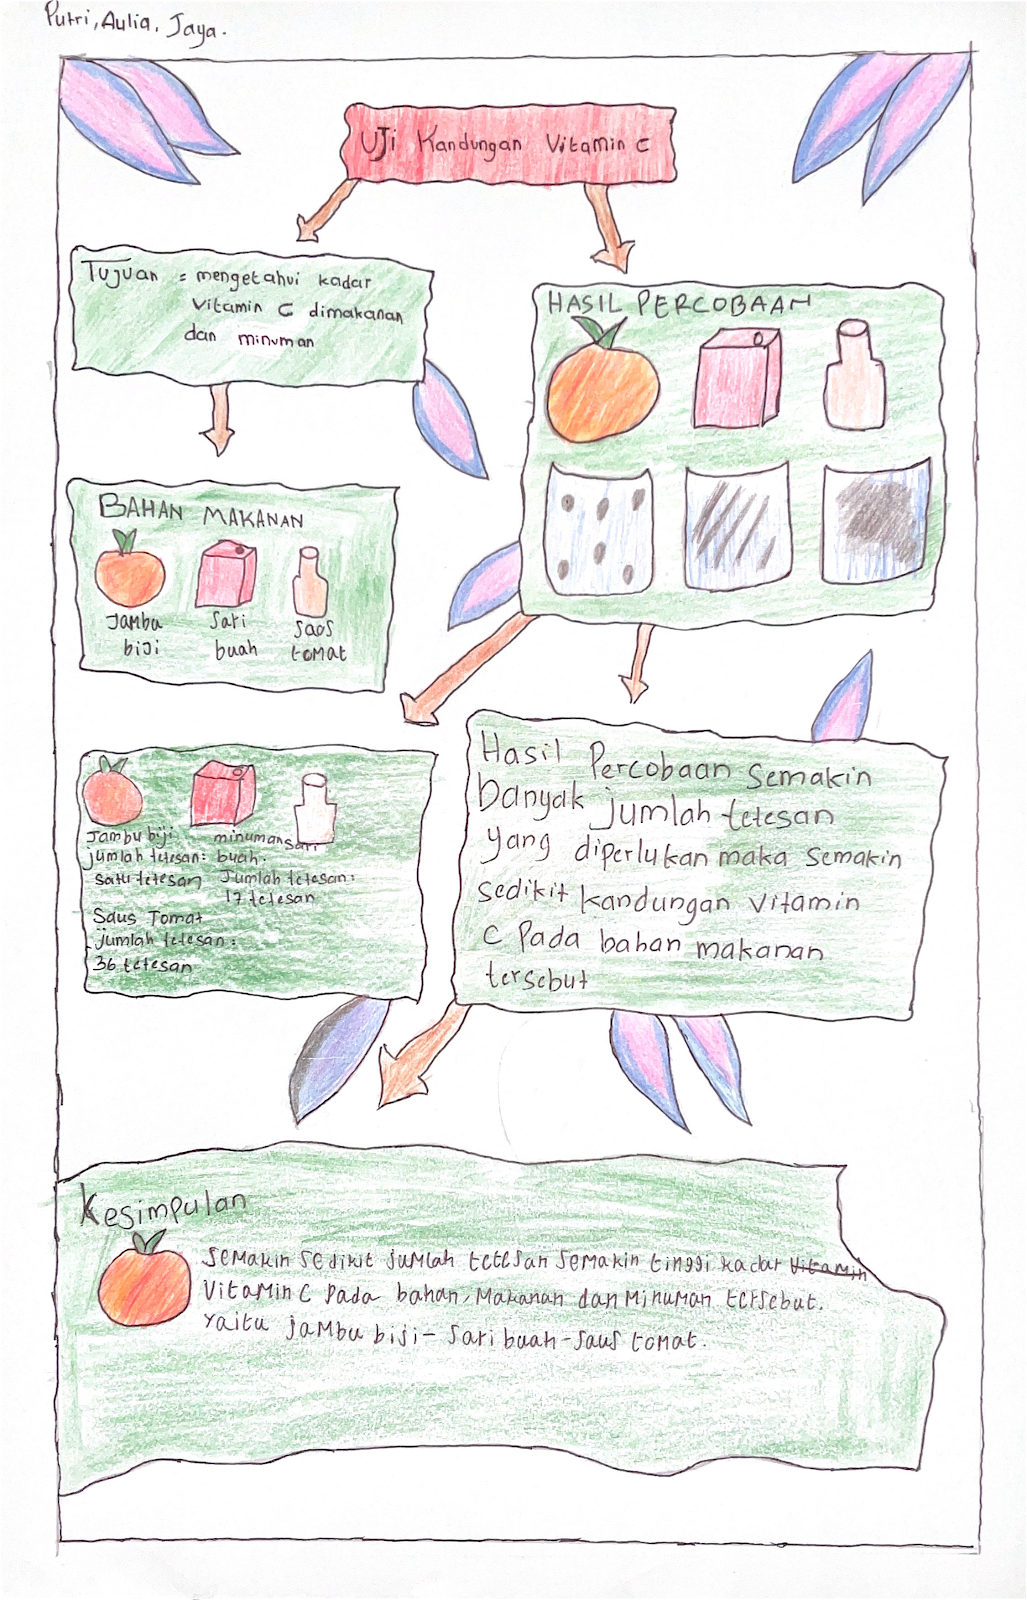 Putri, Aulia, Jaya.
Uji Kandungan Vitamin C
Tujuan = mengetahui kadar
vitamin C dimakanan
dan minuman
HASIL PERCOBAAN
BAHAN MAKANAN
Jambu
biji
Sari
buah
Saos
tomat
Jambu biji
jumlah tetesan:
satu tetesan
minuman sari
buah.
Jumlah tetesan:
17 tetesan
Saus Tomat
jumlah tetesan:
36 tetesan
Hasil Percobaan Semakin
banyak jumlah tetesan
yang diperlukan maka semakin
sedikit kandungan vitamin
C pada bahan makanan
tersebut
Kesimpulan
Semakin sedikit jumlah tetesan semakin tinggi kadar vitamin
Vitamin C pada bahan, makanan dan minuman tersebut.
Yaitu jambu biji - sari buah - saus tomat.